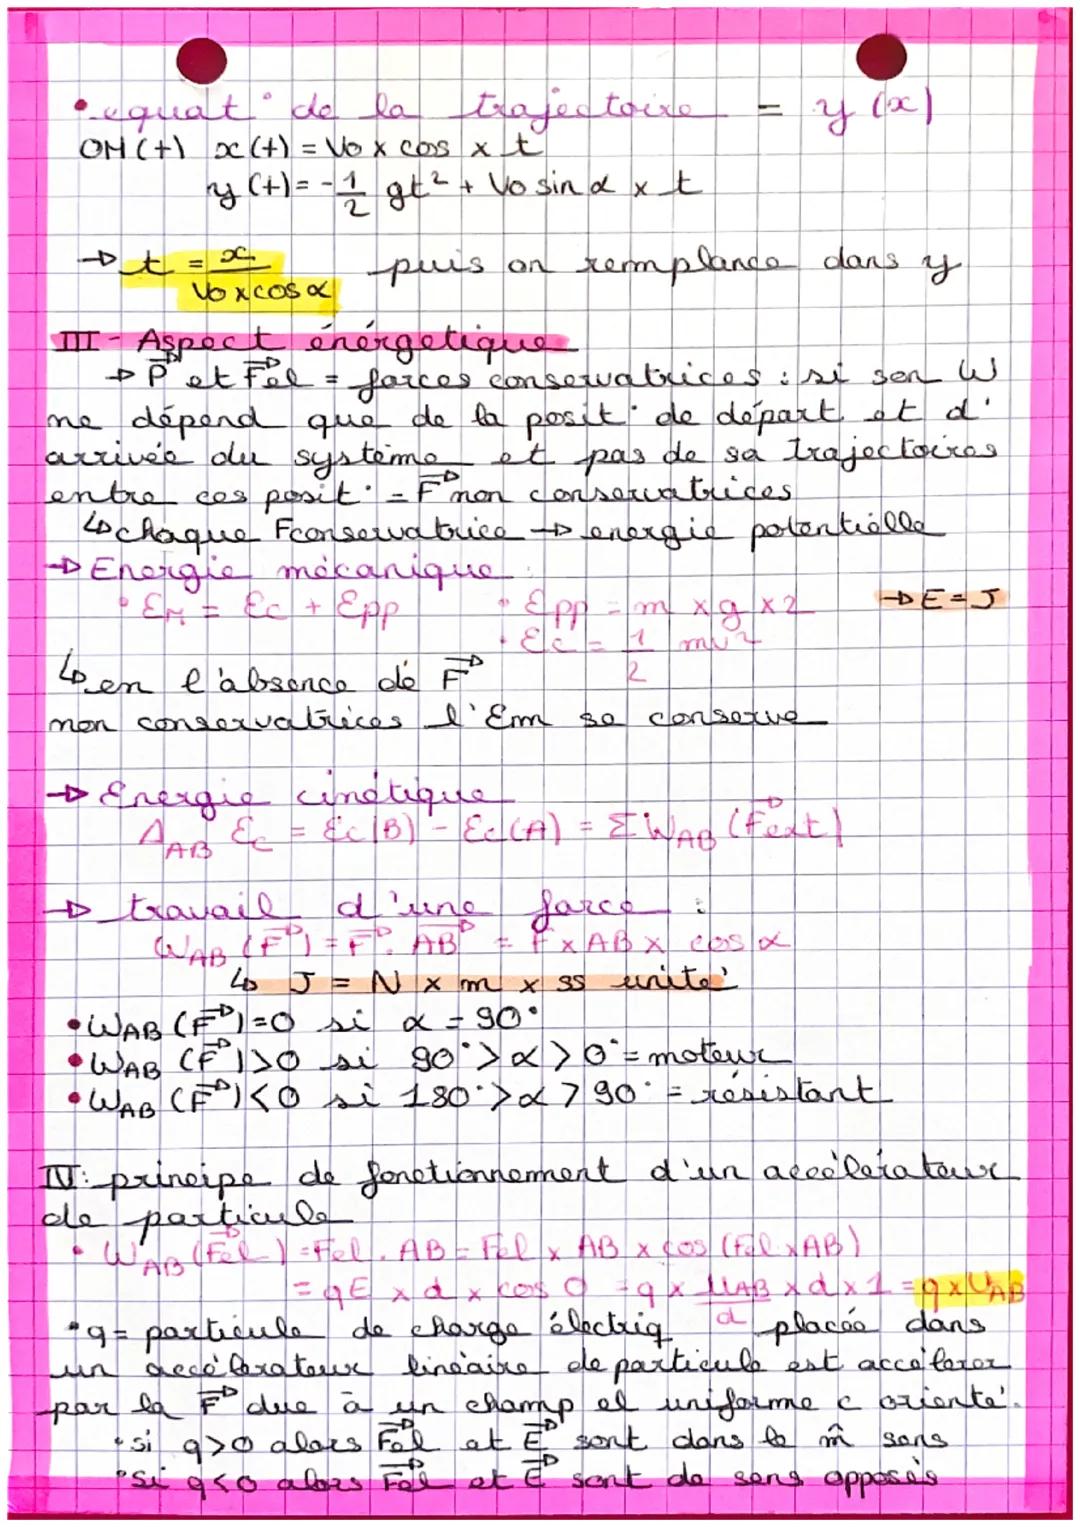 • equat° de la trajectoire = y(x)
OM(t) x(t) = V0 x cos x t
y(t) = -1/2 gt² + V0 sin α x t
→ t = x / V0 x cos α puis on remplande dans y
III - Aspect énérgetique
→ P⃗ et F⃗el = forces conservatrices : si son W
ne dépend que de la posit° de départ et d'
arrivée du système et pas de sa trajectoires
entre ces posit° = F⃗ non conservatrices
↳ chaque Fconservatrice → energie potentielle
→ Energie mécanique
• EM = Ec + Epp • Epp = m x g x z → E = J
• Ec = 1/2 mv²
↳ en l'absence de F⃗
non conservatrices l'Em se conserve
→ Energie cinétique
ΔAB Ec = Ec(B) - Ec(A) = ΣWAB (F⃗ext)
→ travail d'une force :
WAB (F⃗) = F⃗. AB⃗ = F x AB x cos α
↳ J = N x m x ss unité
• WAB (F⃗) = 0 si α = 90°
• WAB (F⃗) > 0 si 90° > α > 0° = moteur
• WAB (F⃗) < 0 si 180° > α > 90° = résistant
IV: principe de fonctionnement d'un accélérateur
de particule
• WAB (F⃗el) = Fel . AB = Fel x AB x cos (Fel x AB)
= qE x d x cos 0 = q x UAB/d x d x 1 = q x UAB
• q = particule de charge électriq placée dans
un accélérateur linéaire de particule est accélérer
par la F⃗ due à un champ el uniforme c orienté.
• si q>0 alors F⃗el et E⃗ sont dans le m̂ sens
• si q<0 alors F⃗el et E⃗ sont de sens opposés